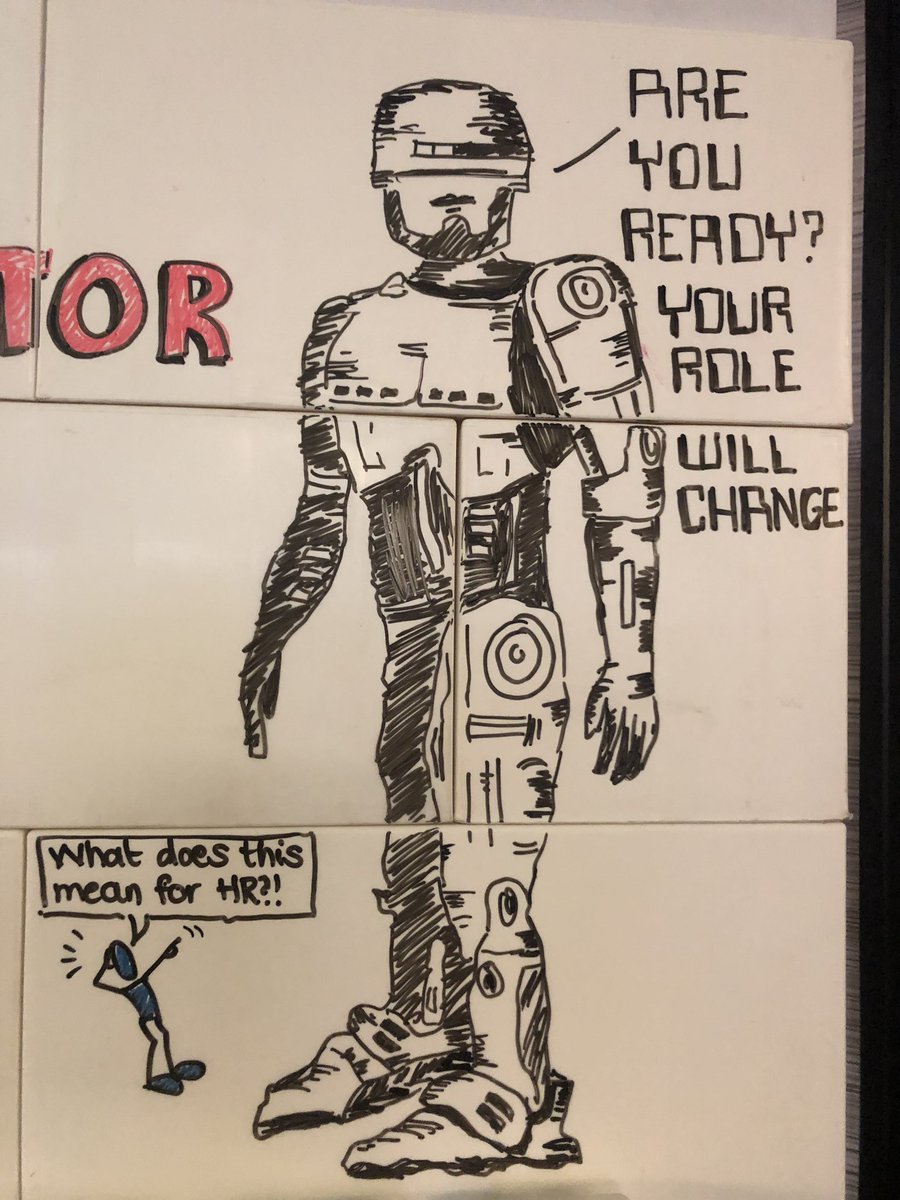 ARE
YOU
READY?
YOUR
ROLE
WILL
CHANGE
TOR
What does this
mean for HR?!